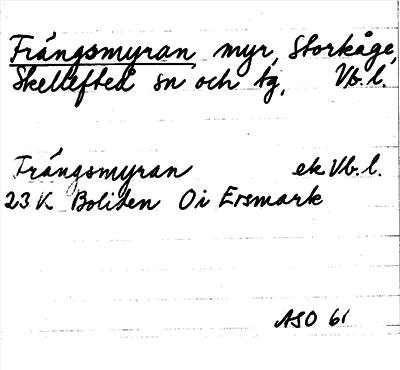 Frångsmyran, myr, Storkåge,
Skellefteå sn och tg, Vb. l.
Frångsmyran ek Vb. l.
23 K Boliden 0i Ersmark
ASO 61